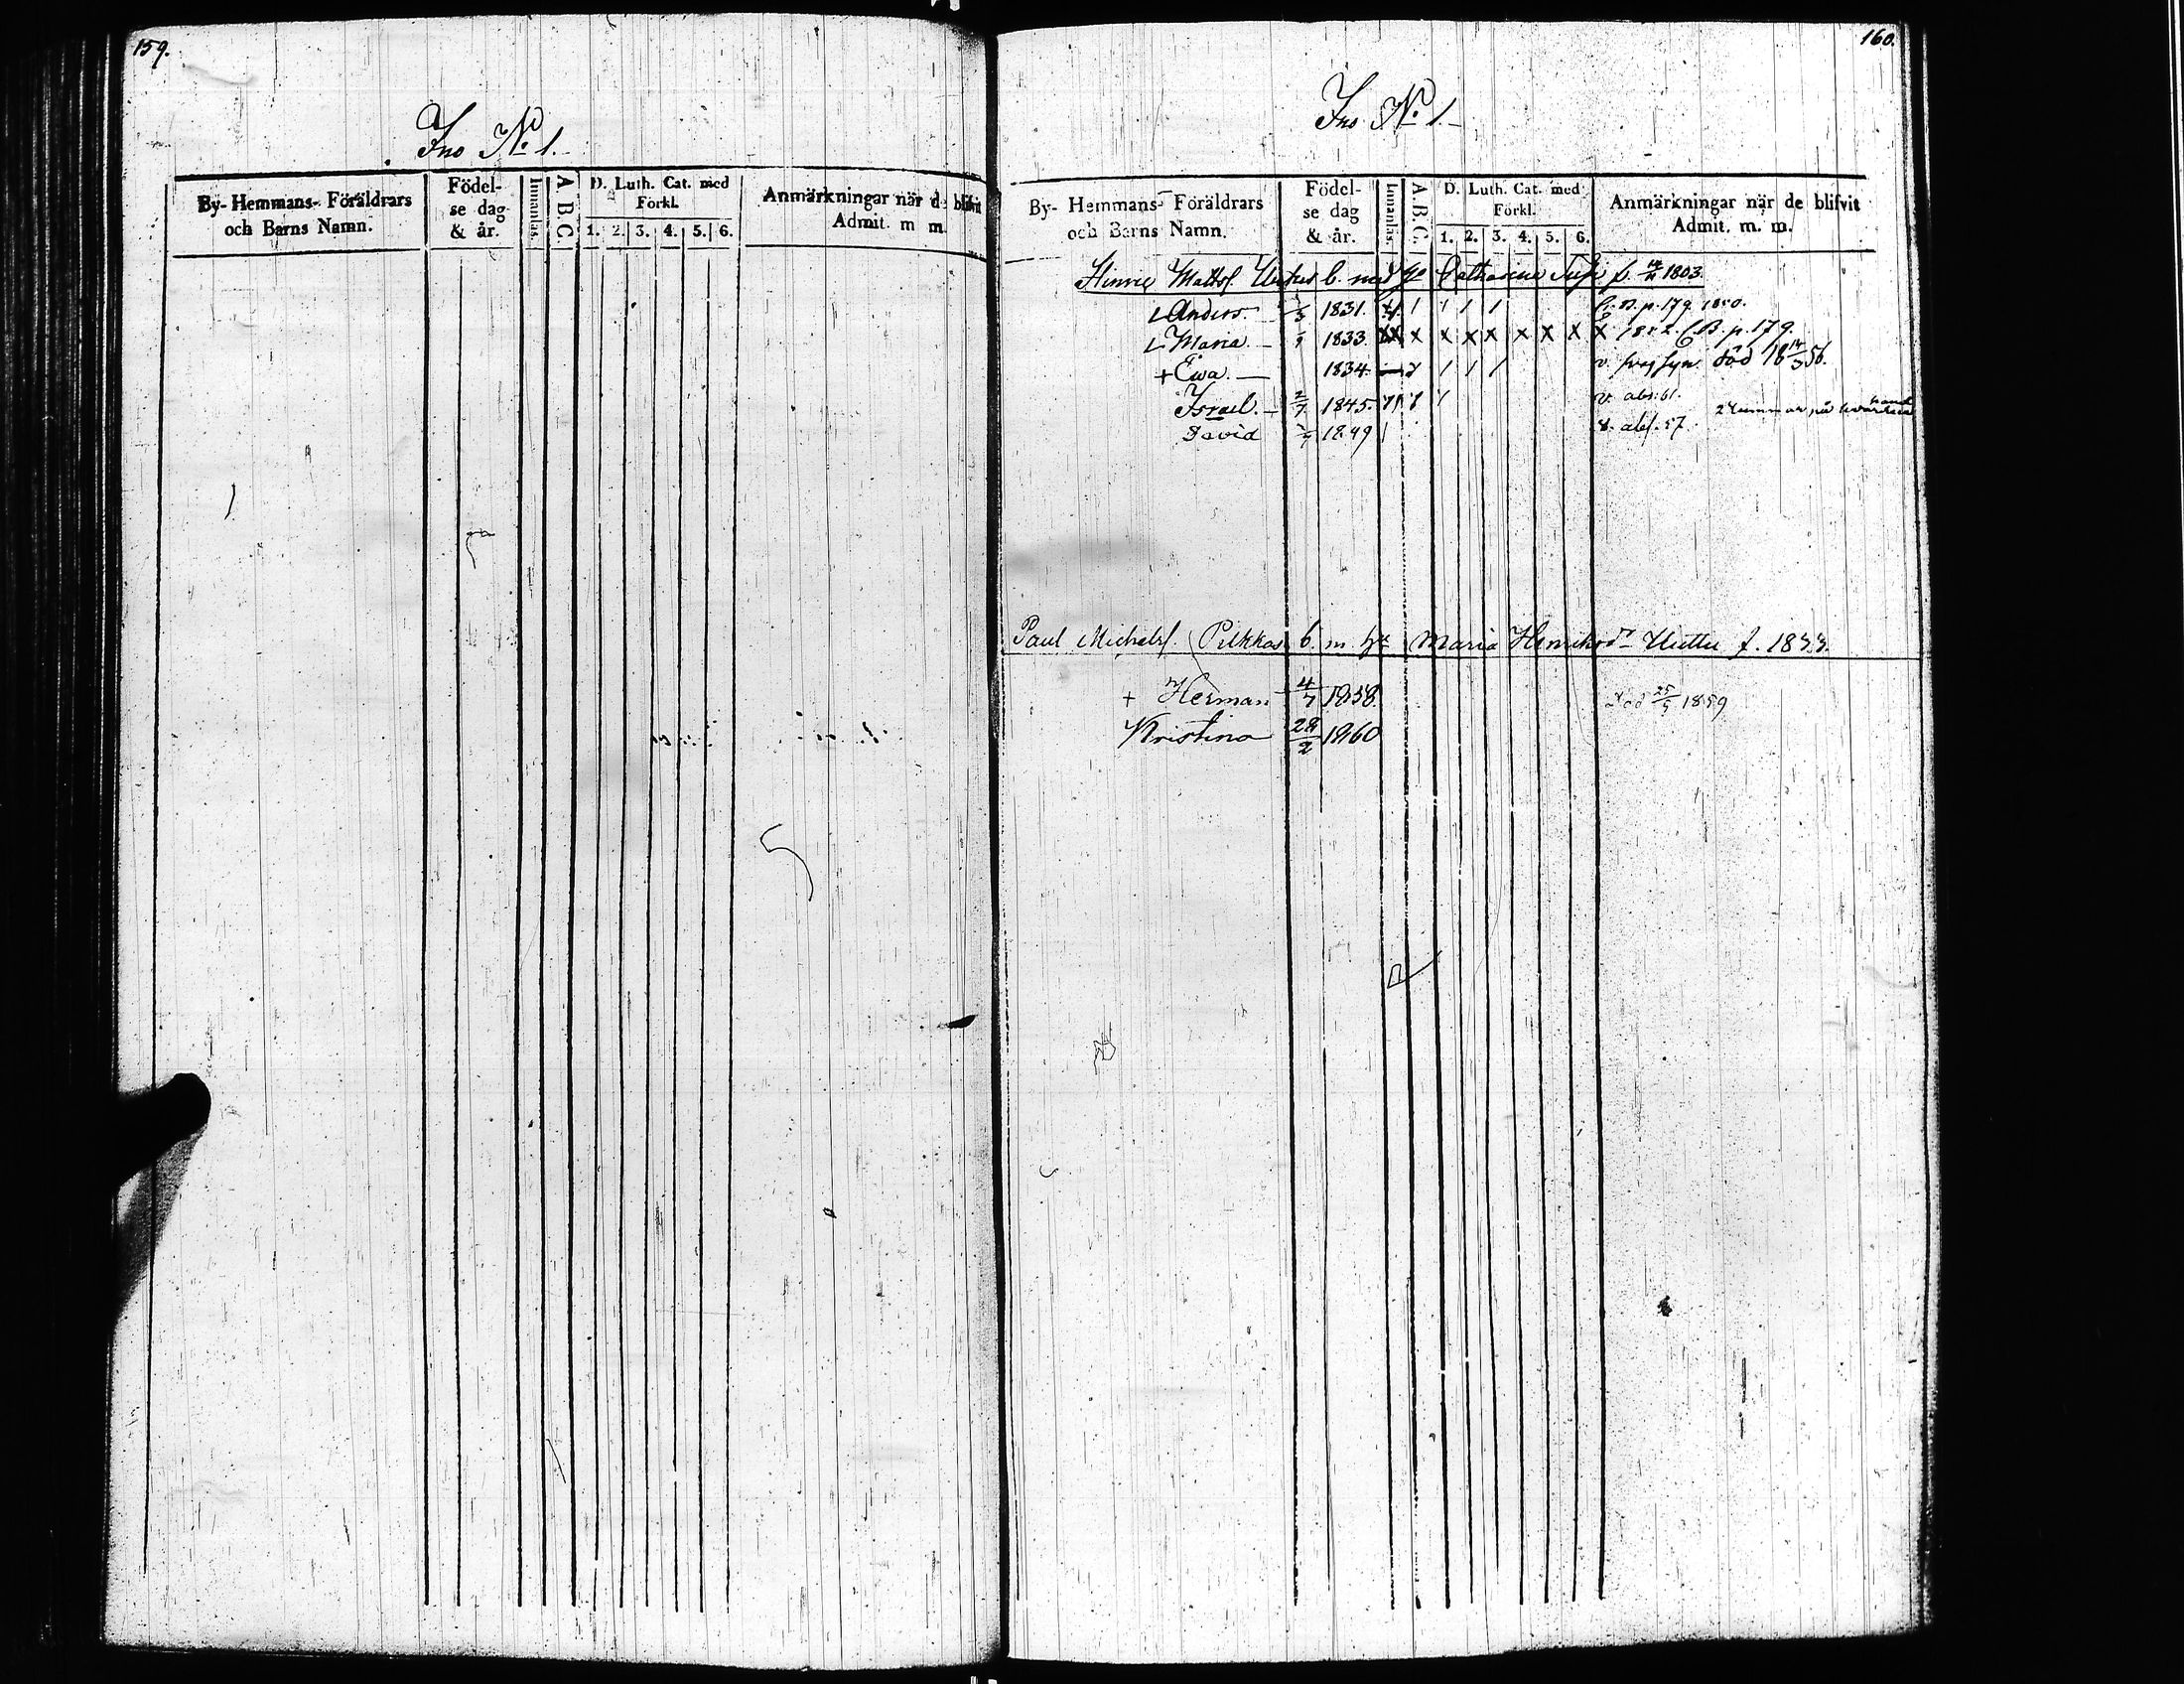 159.
Ino No 1.
By- Hemmans- Föräldrars och Barns Namn.
Födel- se dag & år.
Innanläs.
A B C.
D. Luth. Cat. med Förkl.
1. 2. 3. 4. 5. 6.
Anmärkningar när de blifvit Admit. m m.
160.
Ino No 1.
By- Hemmans- Föräldrars och Barns Namn.
Födel- se dag & år.
Innanläs.
A. B. C.
D. Luth. Cat. med Förkl.
1. 2. 3. 4. 5. 6.
Anmärkningar när de blifvit Admit. m. m.
Hinric Mattsf. b. med Catharina f. 1803.
Anders. 1831. p. 179. 1850.
Maria. 1833. X X X X X X X X 1852. C.B. p. 179.
+ Ewa. 1834. v. svag syn. död 18 14/3 56.
Israel. 2/7 1845. v. abs: 61.
2 tummar på hand
David 1849 v. abs. 57.
Paul Michelsf. Pilkkas b. m Maria Henriksdr Huttu f. 1833.
+ Herman 4/7 1858. Död 25/5 1859
Kristina 28/2 1860